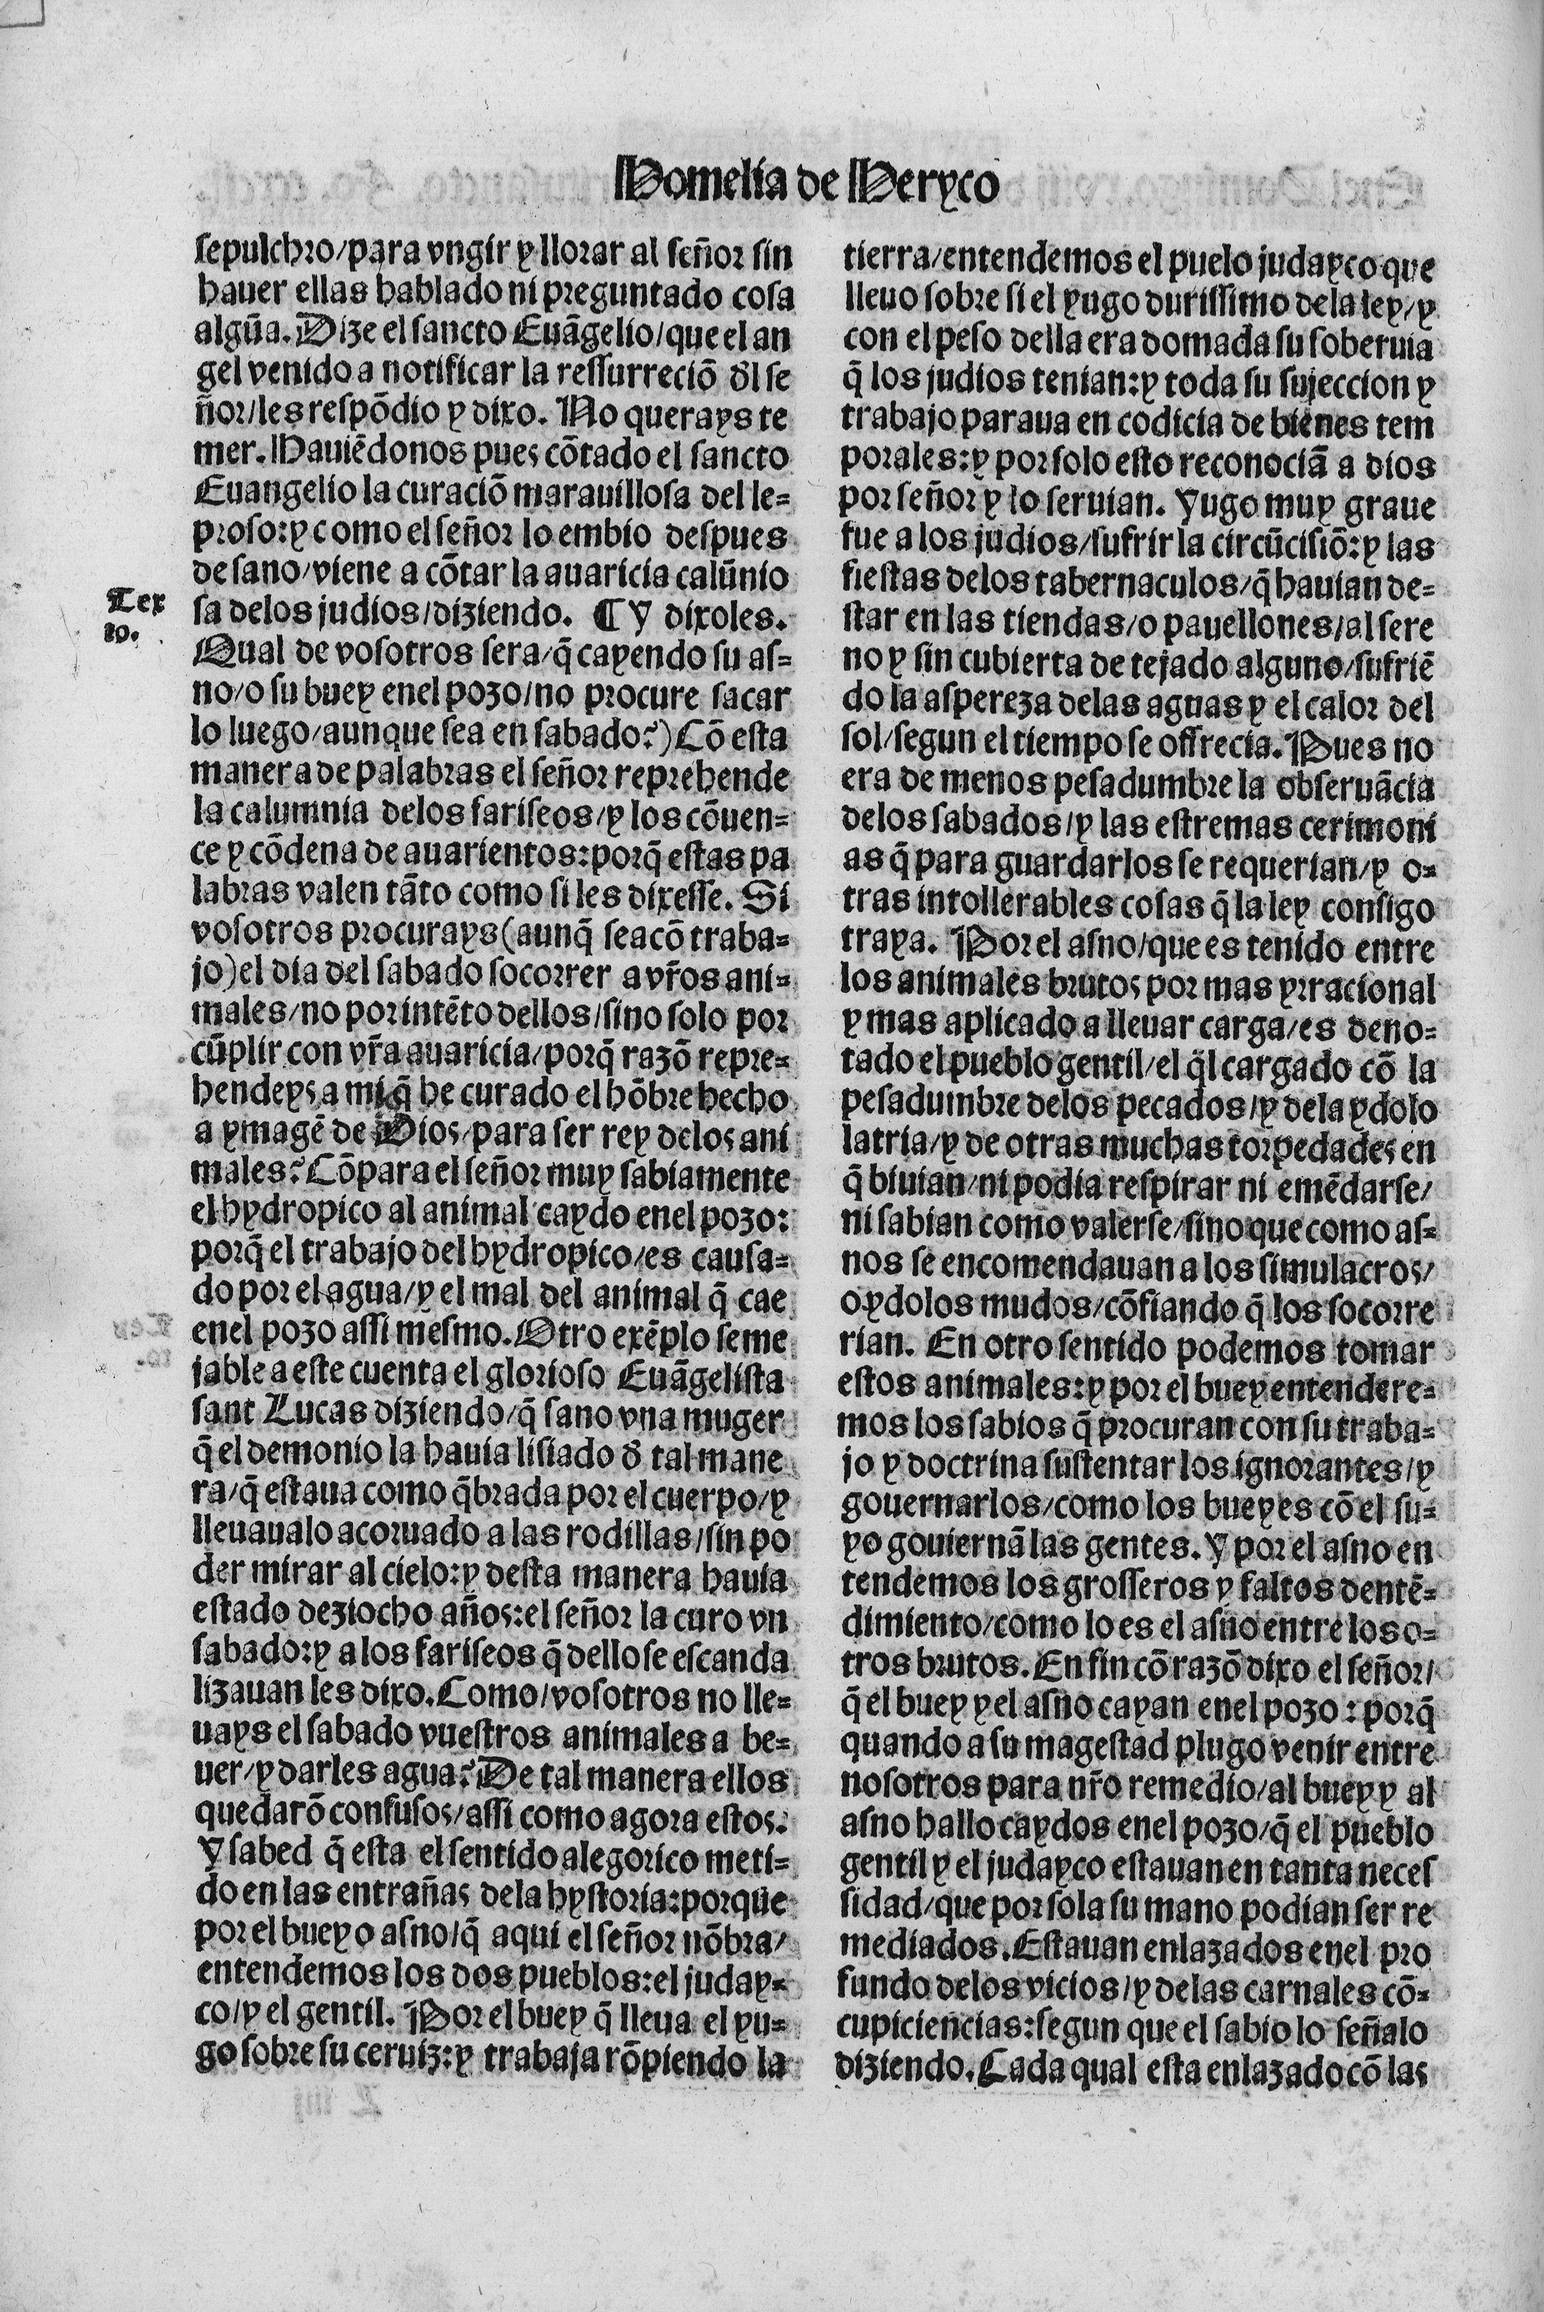 Homelia de Heryco
sepulchro/para vngir y llorar al señor sin
hauer ellas hablado ni preguntado cosa
algūa. Dize el sancto Euāgelio/que el an
gel venido a notificar la ressurreciō ðl se
ñor/les respōdio y dixo. No querays te
mer. Hauiēdonos pues cōtado el sancto
Euangelio la curaciō marauillosa del le=
proso:y como el señor lo embio despues
de sano/viene a cōtar la auaricia calūnio
Tex
to.
sa delos judios/diziendo. ¶ Y dixoles.
Qual de vosotros sera/q̄ cayendo su as=
no/o su buey enel pozo/no procure sacar
lo luego/aunque sea en sabado?) Cō esta
manera de palabras el señor reprehende
la calumnia delos fariseos/y los cōuen=
ce y cōdena de auarientos:porq̄ estas pa
labras valen tāto como si les dixesse. Si
vosotros procurays(aunq̄ sea cō traba=
jo)el dia del sabado socorrer a vr̄os ani=
males/no por intēto dellos/sino solo por
cūplir con vr̄a auaricia/porq̄ razō repre=
hendeys a mi q̄ he curado el hōbre hecho
a ymagē de Dios/para ser rey delos ani
males? Cōpara el señor muy sabiamente
el hydropico al animal caydo enel pozo:
porq̄ el trabajo del hydropico/es causa=
do por el agua/y el mal del animal q̄ cae
enel pozo assi mesmo. Otro exēplo seme
jable a este cuenta el glorioso Euāgelista
sant Lucas diziendo/q̄ sano vna muger
q̄ el demonio la hauia lisiado ð tal mane
ra/q̄ estaua como q̄brada por el cuerpo/y
lleuaualo acoruado a las rodillas/sin po
der mirar al cielo:y desta manera hauia
estado deziocho años:el señor la curo vn
sabado:y a los fariseos q̄ dello se escanda
lizauan les dixo. Como/vosotros no lle=
uays el sabado vuestros animales a be=
uer/y darles agua? De tal manera ellos
quedarō confusos/assi como agora estos.
Y sabed q̄ esta el sentido alegorico meti=
do en las entrañas dela hystoria:porque
por el buey o asno/q̄ aqui el señor nōbra/
entendemos los dos pueblos:el juday=
co/y el gentil. Por el buey q̄ lleua el yu=
go sobre su ceruiz:y trabaja rōpiendo la
tierra/entendemos el puelo judayco que
lleuo sobre si el yugo durissimo dela ley/y
con el peso della era domada su soberuia
q̄ los judios tenian:y toda su sujeccion y
trabajo paraua en codicia de bienes tem
porales:y por solo esto reconociā a dios
por señor y lo seruian. Yugo muy graue
fue a los judios/sufrir la circūcisiō:y las
fiestas delos tabernaculos/q̄ hauian de=
star en las tiendas/o pauellones/al sere
no y sin cubierta de tejado alguno/sufriē
do la aspereza delas aguas y el calor del
sol/segun el tiempo se offrecia. Pues no
era de menos pesadumbre la obseruācia
delos sabados/y las estremas cerimoni
as q̄ para guardarlos se requerian/y o=
tras intollerables cosas q̄ la ley consigo
traya. Por el asno/que es tenido entre
los animales brutos por mas yrracional
y mas aplicado a lleuar carga/es deno=
tado el pueblo gentil/el q̄l cargado cō la
pesadumbre delos pecados/y dela ydolo
latria/y de otras muchas torpedades en
q̄ biuian/ni podia respirar ni emēdarse/
ni sabian como valerse/sino que como as=
nos se encomendauan a los simulacros/
o ydolos mudos/cōfiando q̄ los socorre
rian. En otro sentido podemos tomar
estos animales:y por el buey entendere=
mos los sabios q̄ procuran con su traba=
jo y doctrina sustentar los ignorantes/y
gouernarlos/como los bueyes cō el su=
yo gouiernā las gentes. Y por el asno en
tendemos los grosseros y faltos dentē=
dimiento/como lo es el asno entre los o=
tros brutos. En fin cō razō dixo el señor/
q̄ el buey y el asno cayan enel pozo:porq̄
quando a su magestad plugo venir entre
nosotros para nr̄o remedio/al buey y al
asno hallo caydos enel pozo/q̄ el pueblo
gentil y el judayco estauan en tanta neces
sidad/que por sola su mano podian ser re
mediados. Estauan enlazados enel pro
fundo delos vicios/y delas carnales cō=
cupiciencias:segun que el sabio lo señalo
diziendo. Cada qual esta enlazado cō las